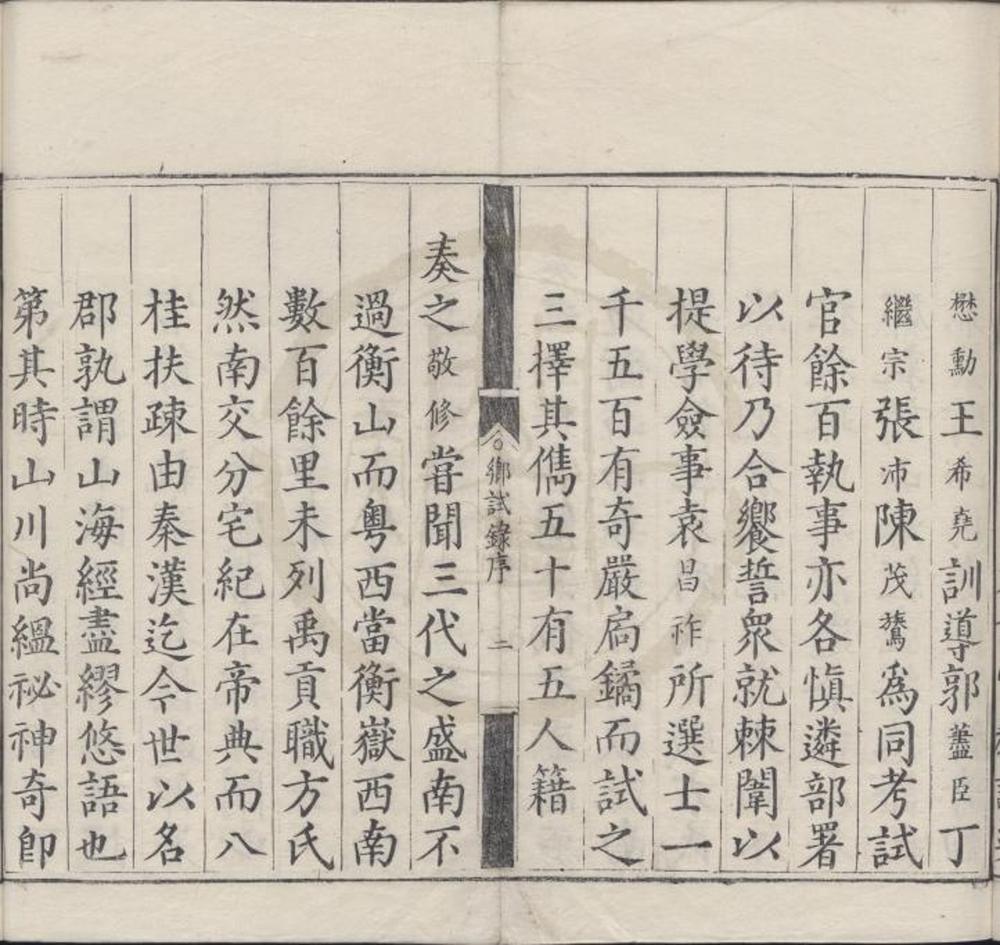 懋勳王希堯訓導郭藎臣丁
繼宗張沛陳茂鷟為同考試
官餘百執事亦各慎遴部署
以待乃合饗誓衆就棘闈以
提學僉事袁昌祚所選士一
千五百有奇嚴扃鐍而試之
三擇其儁五十有五人籍
鄉試錄序 二
奏之敬修嘗聞三代之盛南不
過衡山而粵西當衡嶽西南
數百餘里未列禹貢職方氏
然南交分宅紀在帝典而八
桂扶疎由秦漢迄今世以名
郡孰謂山海經盡繆悠語也
第其時山川尚縕祕神奇卽